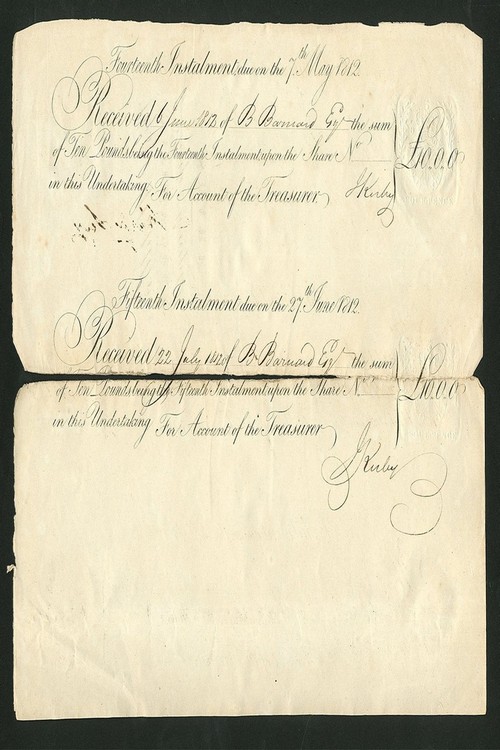 Fourteenth Instalment, due on the 7th May 1812.
Received 6 June 1812 of B Barnard Esqr the sum
of Ten Pounds being the Fourteenth Instalment upon the Share No
£10.0.0
in this Undertaking For Account of the Treasurer.
J Kirby
Fifteenth Instalment due on the 27th June 1812.
Received 22 July 1812 of B Barnard Esqr the sum
of Ten Pounds being the Fifteenth Instalment upon the Share No
£10.0.0
in this Undertaking For Account of the Treasurer
J Kirby